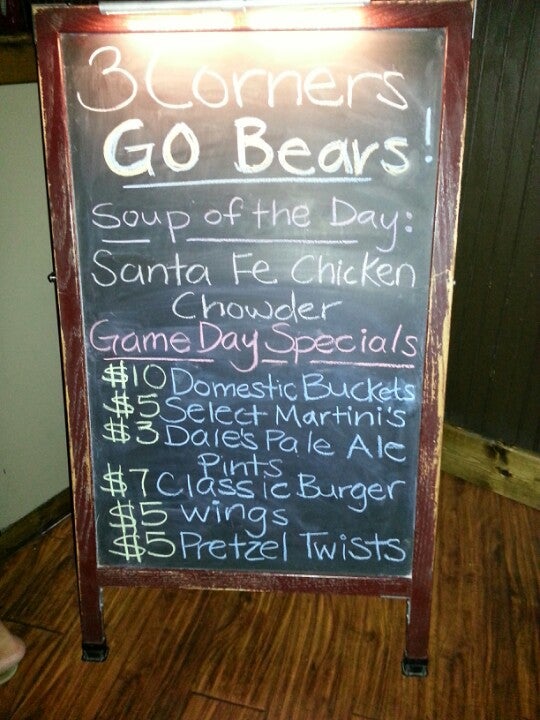 3 Corners
GO Bears!
Soup of the Day:
Santa Fe Chicken
Chowder
Game Day Specials
$10 Domestic Buckets
$5 Select Martini's
$3 Dale's Pale Ale
Pints
$7 Classic Burger
$5 Wings
$5 Pretzel Twists